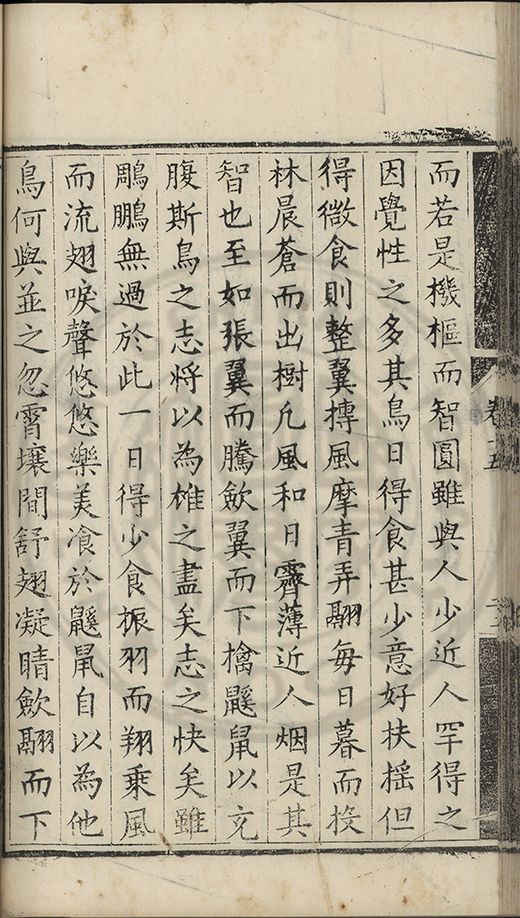 而若是機樞而智圓雖與人少近人罕得之
因覺性之多其鳥日得食甚少意好扶摇但
得微食則整翼摶風摩青弄翮每日暮而投
林晨蒼而出樹凢風和日霽薄近人烟是其
智也至如張翼而騰歛翼而下擒鼷鼠以充
腹斯鳥之志将以為雄之盡矣志之快矣雖
鵰鵬無過於此一日得少食振羽而翔乘風
而流翅唳聲悠悠樂美飡於鼷鼠自以為他
鳥何與並之忽霄壤間舒翅凝睛歛翮而下
卷十五
二